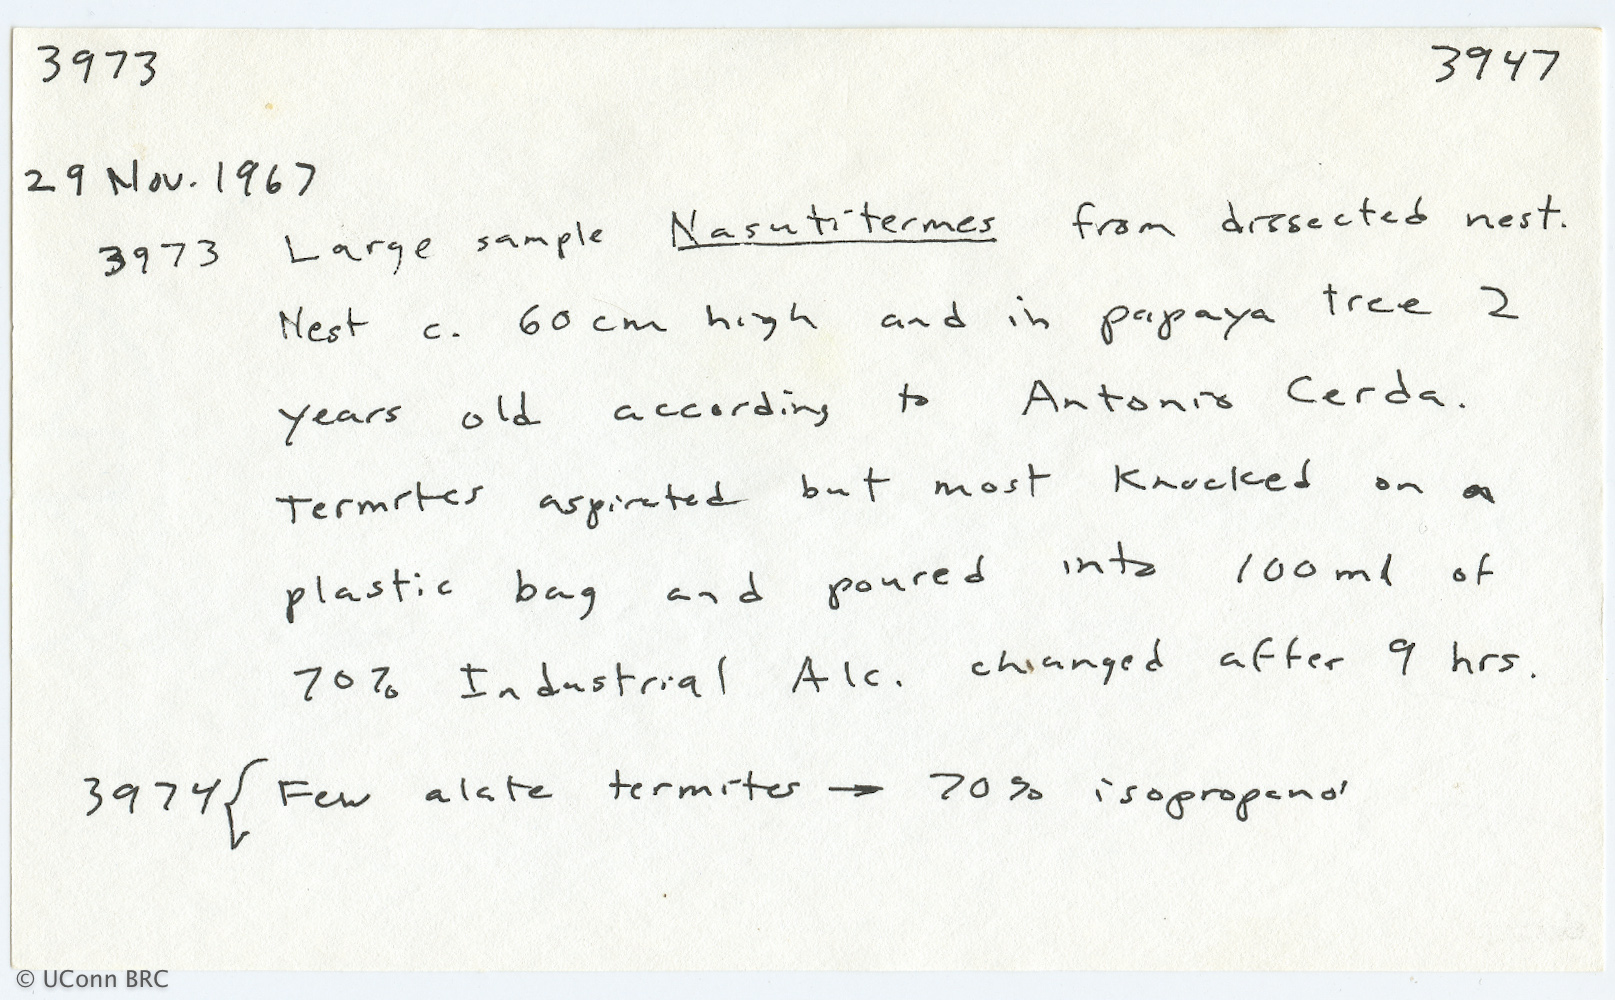 3973 3947
29 Nov. 1967
3973 Large sample Nasutitermes from dissected nest.
Nest c. 60 cm high and in papaya tree 2
years old according to Antonio Cerda.
Termites aspirated but most Knocked on a
plastic bag and poured into 100 ml of
70% Industrial Alc. changed after 9 hrs.
3974 { Few alate termites → 70% isopropanol
© UConn BRC